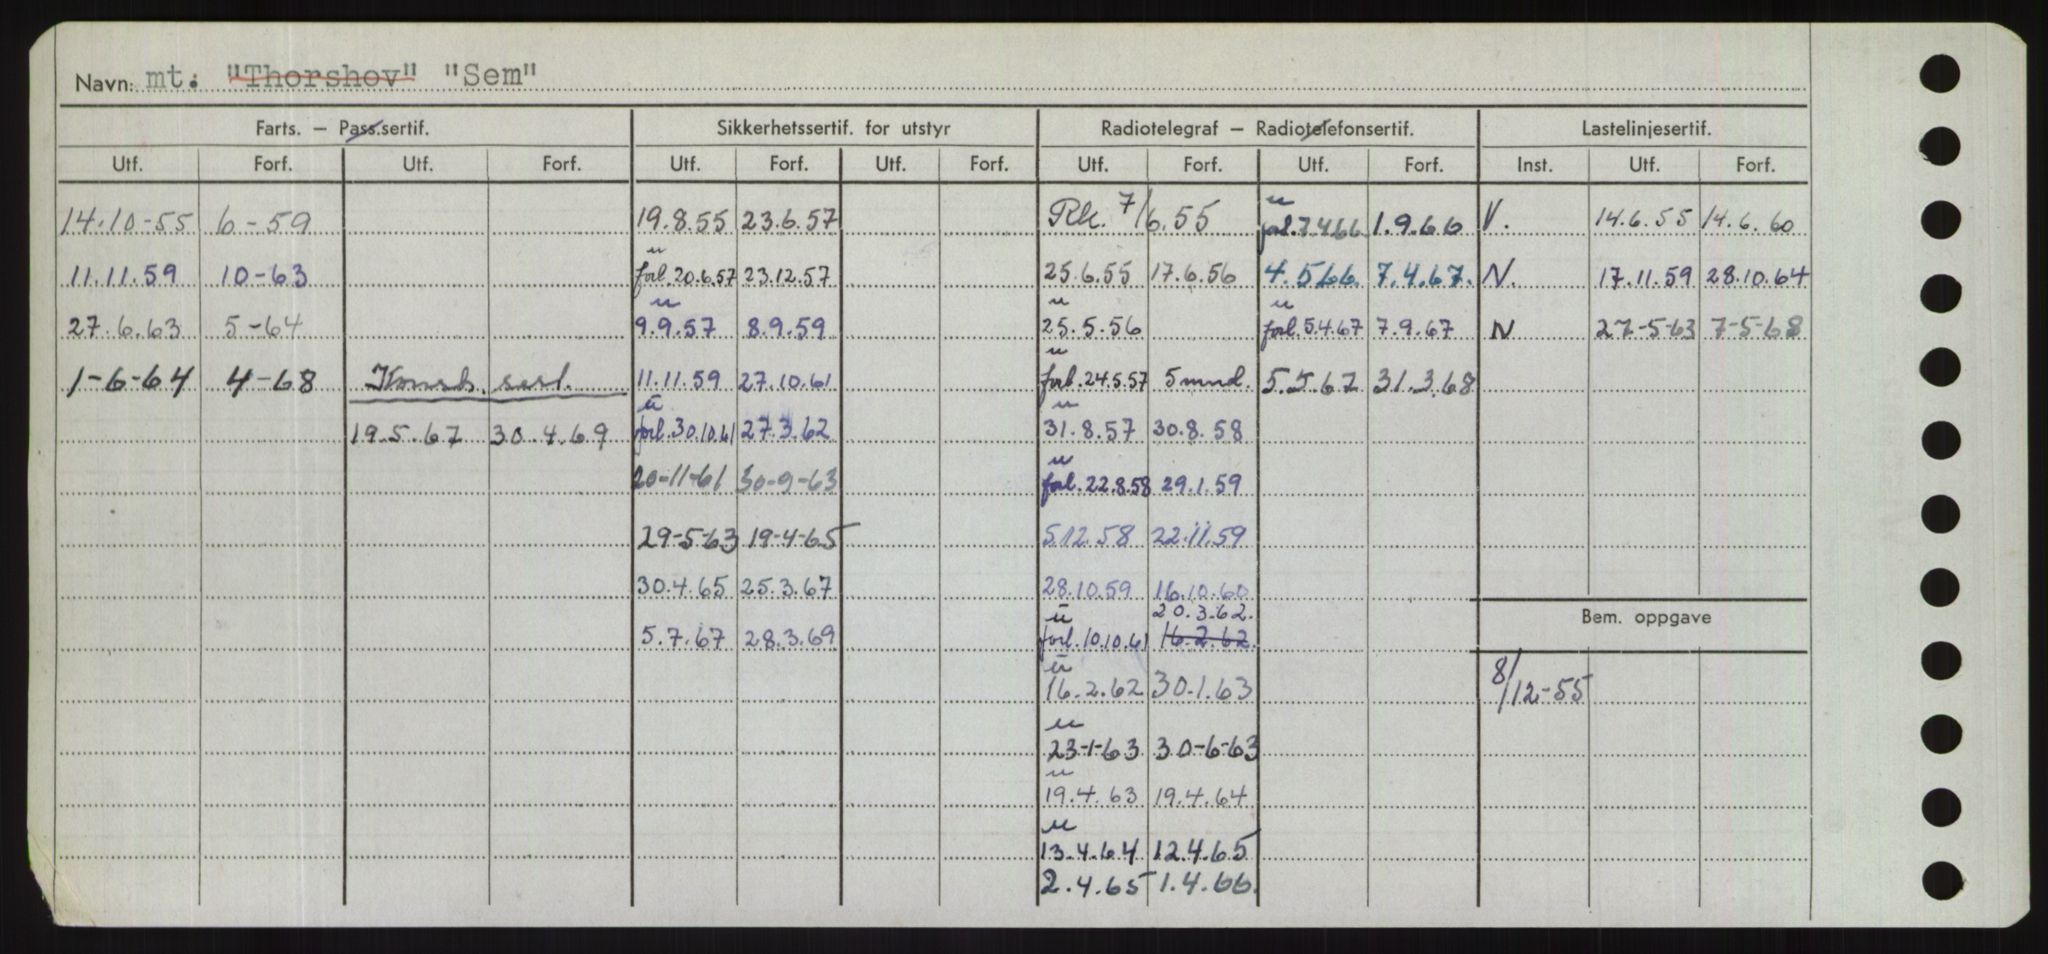 Navn: mt: "Thorshov" "Sem"
Farts. – Pass.sertif. Sikkerhetssertif. for utstyr Radiotelegraf – Radiotelefonsertif. Lastelinjesertif.
Utf. Forf. Utf. Forf. Utf. Forf. Utf. Forf. Utf. Forf. Utf. Forf. Inst. Utf. Forf.
14.10-55 6-59 19.8.55 23.6.57 Rk. 7/6.55 u forl.7.4.66 1.9.66 V. 14.6.55 14.6.60
11.11.59 10-63 u forl.20.6.57 23.12.57 25.6.55 17.6.56 4.5.66 7.4.67. N. 17.11.59 28.10.64
27.6.63 5-64 u 9.9.57 8.9.59 u 25.5.56 u forl.5.4.67 7.9.67 N 27-5-63 7-5-68
1-6-64 4-68 Konstr. sert. 11.11.59 27.10.61 u forl.24.5.57 5 mnd. 5.5.67 31.3.68
19.5.67 30.4.69 u forl.30.10.61 27.3.62 u 31.8.57 30.8.58
20-11-61 30-9-63 u forl.22.8.58 29.1.59
29-5-63 19-4-65 5.12.58 22.11.59
30.4.65 25.3.67 28.10.59 16.10.60
20.3.62.
5.7.67 28.3.69 u forl.10.10.61 16.2.62.
Bem. oppgave
u 16.2.62 30.1.63 8/12-55
u 23-1-63 30-6-63
u 19.4.63 19.4.64
u 13.4.64 12.4.65
2.4.65 1.4.66.